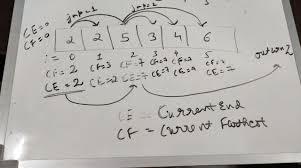 CE=0 jmp=1 jmp=2
CF=0
2 2 5 3 4 6
i = 0 1 2 3 4 5
CF=2 CF=3 CF=7 CF=7 CF=7
CE=2 CE=2 CE=7 CE=7 CE=7
return 2
CE = Current End
CF = Current Farthest